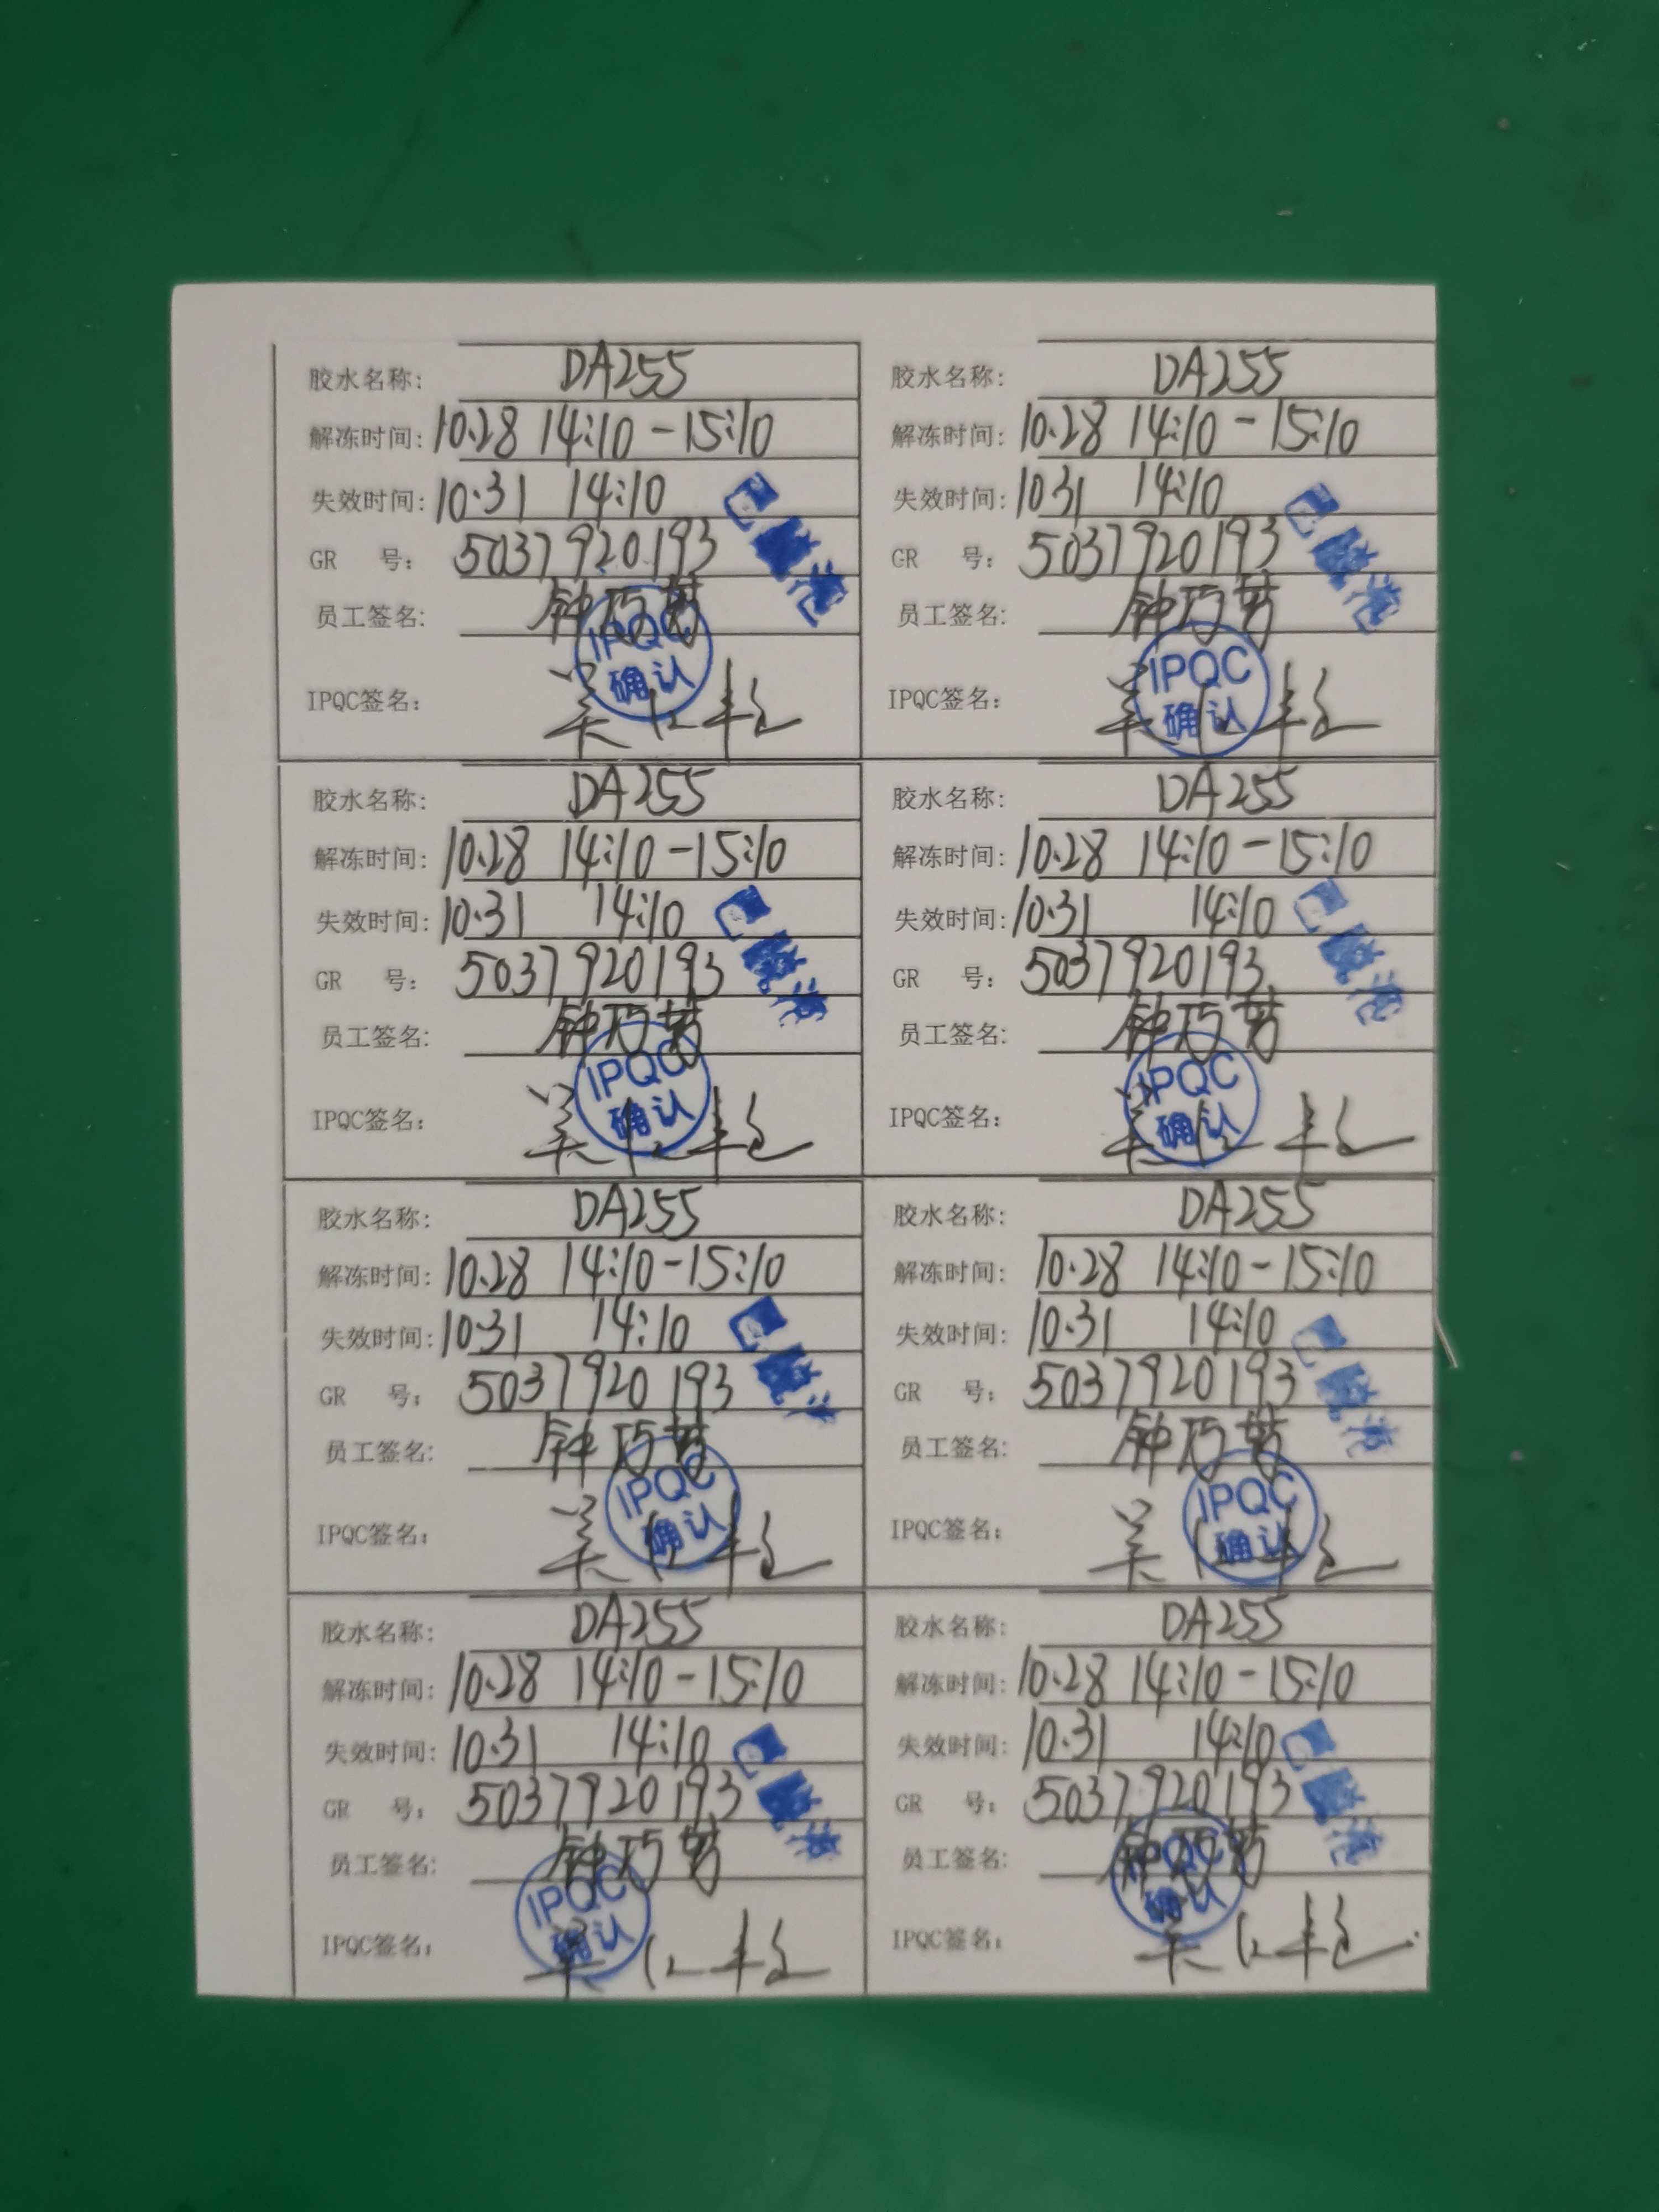 胶水名称: DA255
解冻时间: 10.28 14:10-15:10
失效时间: 10.31 14:10
GR 号: 5037920193
员工签名: 钟巧
IPQC
确认
IPQC签名:
胶水名称: DA255
解冻时间: 10.28 14:10-15:10
失效时间: 1031 14:10
GR 号: 5037920193
员工签名: 钟巧
IPQC
确认
IPQC签名:
胶水名称: DA255
解冻时间: 10.28 14:10-15:10
失效时间: 10.31 14:10
GR 号: 5037920193
员工签名: 钟巧
IPQC
确认
IPQC签名:
胶水名称: DA255
解冻时间: 10.28 14:10-15:10
失效时间: 10.31 14:10
GR 号: 5037920193
员工签名: 钟巧
IPQC
确认
IPQC签名:
胶水名称: DA255
解冻时间: 10.28 14:10-15:10
失效时间: 10.31 14:10
GR 号: 5037920193
员工签名: 钟巧
IPQC
确认
IPQC签名:
胶水名称: DA255
解冻时间: 10.28 14:10-15:10
失效时间: 10.31 14:10
GR 号: 5037920193
员工签名: 钟巧
IPQC
确认
IPQC签名:
胶水名称: DA255
解冻时间: 10.28 14:10-15:10
失效时间: 10.31 14:10
GR 号: 5037920193
员工签名: 钟巧
IPQC
确认
IPQC签名:
胶水名称: DA255
解冻时间: 10.28 14:10-15:10
失效时间: 10.31 14:10
GR 号: 5037920193
员工签名: 钟巧
IPQC
确认
IPQC签名: